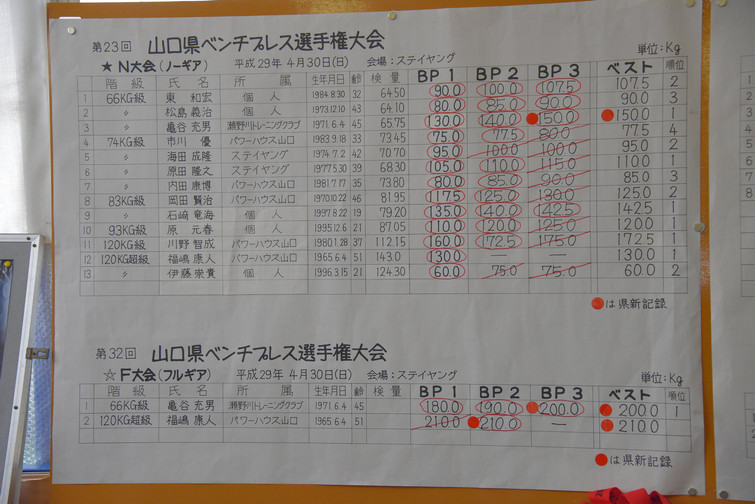 第23回 山口県ベンチプレス選手権大会
★ N大会(ノーギア) 平成29年 4月30日(日) 会場：ステイヤング 単位：Kg
階級 氏名 所属 生年月日 齢 検量 BP1 BP2 BP3 ベスト 順位
1 66KG級 東 和宏 個人 1984.8.30 32 64.50 90.0 100.0 107.5 107.5 2
2 〃 松島義治 個人 1973.12.10 43 64.10 80.0 85.0 90.0 90.0 3
3 〃 亀谷充男 瀬野川トレーニングクラブ 1971.6.4 45 65.75 130.0 140.0 150.0 150.0 1
4 74KG級 市川 優 パワーハウス山口 1983.9.18 33 73.45 75.0 77.5 80.0 77.5 4
5 〃 海田成隆 ステイヤング 1974.7.2 42 70.70 95.0 100.0 100.0 95.0 2
6 〃 原田隆文 ステイヤング 1977.5.30 39 68.30 105.0 110.0 115.0 110.0 1
7 〃 内田康博 パワーハウス山口 1981.7.17 35 73.80 80.0 85.0 90.0 85.0 3
8 83KG級 岡田賢治 パワーハウス山口 1970.10.22 46 81.95 117.5 125.0 130.0 125.0 2
9 〃 石崎竜海 個人 1997.8.22 19 79.20 135.0 140.0 142.5 142.5 1
10 93KG級 原 元春 個人 1995.12.6 21 87.05 110.0 120.0 125.0 120.0 1
11 120KG級 川野智成 パワーハウス山口 1980.1.28 37 112.15 160.0 172.5 175.0 172.5 1
12 120KG超級 福嶋康人 パワーハウス山口 1965.6.4 51 143.0 130.0 — — 130.0 1
13 〃 伊藤崇貴 個人 1996.3.15 21 124.30 60.0 75.0 75.0 60.0 2
●は県新記録
第32回 山口県ベンチプレス選手権大会
☆ F大会(フルギア) 平成29年 4月30日(日) 会場：ステイヤング 単位：Kg
階級 氏名 所属 生年月日 齢 検量 BP1 BP2 BP3 ベスト 順位
1 66KG級 亀谷充男 瀬野川トレーニングクラブ 1971.6.4 45 180.0 190.0 200.0 200.0 1
2 120KG超級 福嶋康人 パワーハウス山口 1965.6.4 51 210.0 210.0 — 210.0
●は県新記録